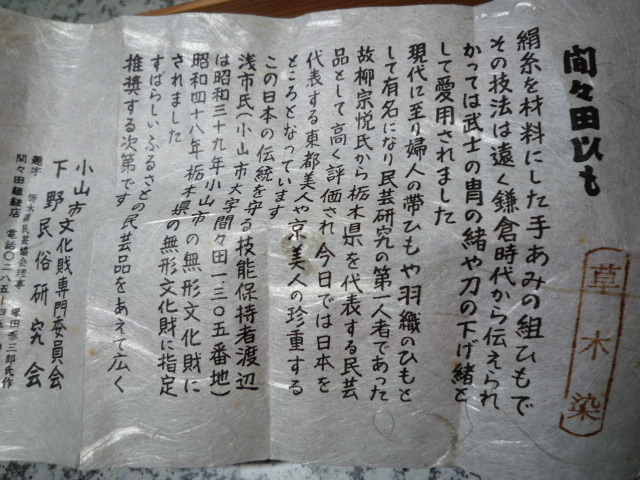 間々田以も
草木染
絹糸を材料にした手あみの組ひもで
その技法は遠く鎌倉時代から伝えられ
かつては武士の冑の緒や刀の下げ緒と
して愛用されました
現代に至り婦人の帯ひもや羽織のひもと
して有名になり民芸研究の第一人者であった
故柳宗悦氏から栃木県を代表する民芸
品として高く評価され今日では日本を
代表する東都美人や京美人の珍重する
ところとなっています
この日本の伝統を守る技能保持者渡辺
浅市氏(小山市大字間々田一三〇五番地)
は昭和三十九年小山市の無形文化財に
昭和四十八年栃木県の無形文化財に指定
されました
すばらしいふるさとの民芸品をあえて広く
推奨する次第です
小山市文化財専門委員会
下野民俗研究会
題字 栃木県民芸協会理事 塚田泰三郎氏作
間々田紐総店 電話〇二八五一四